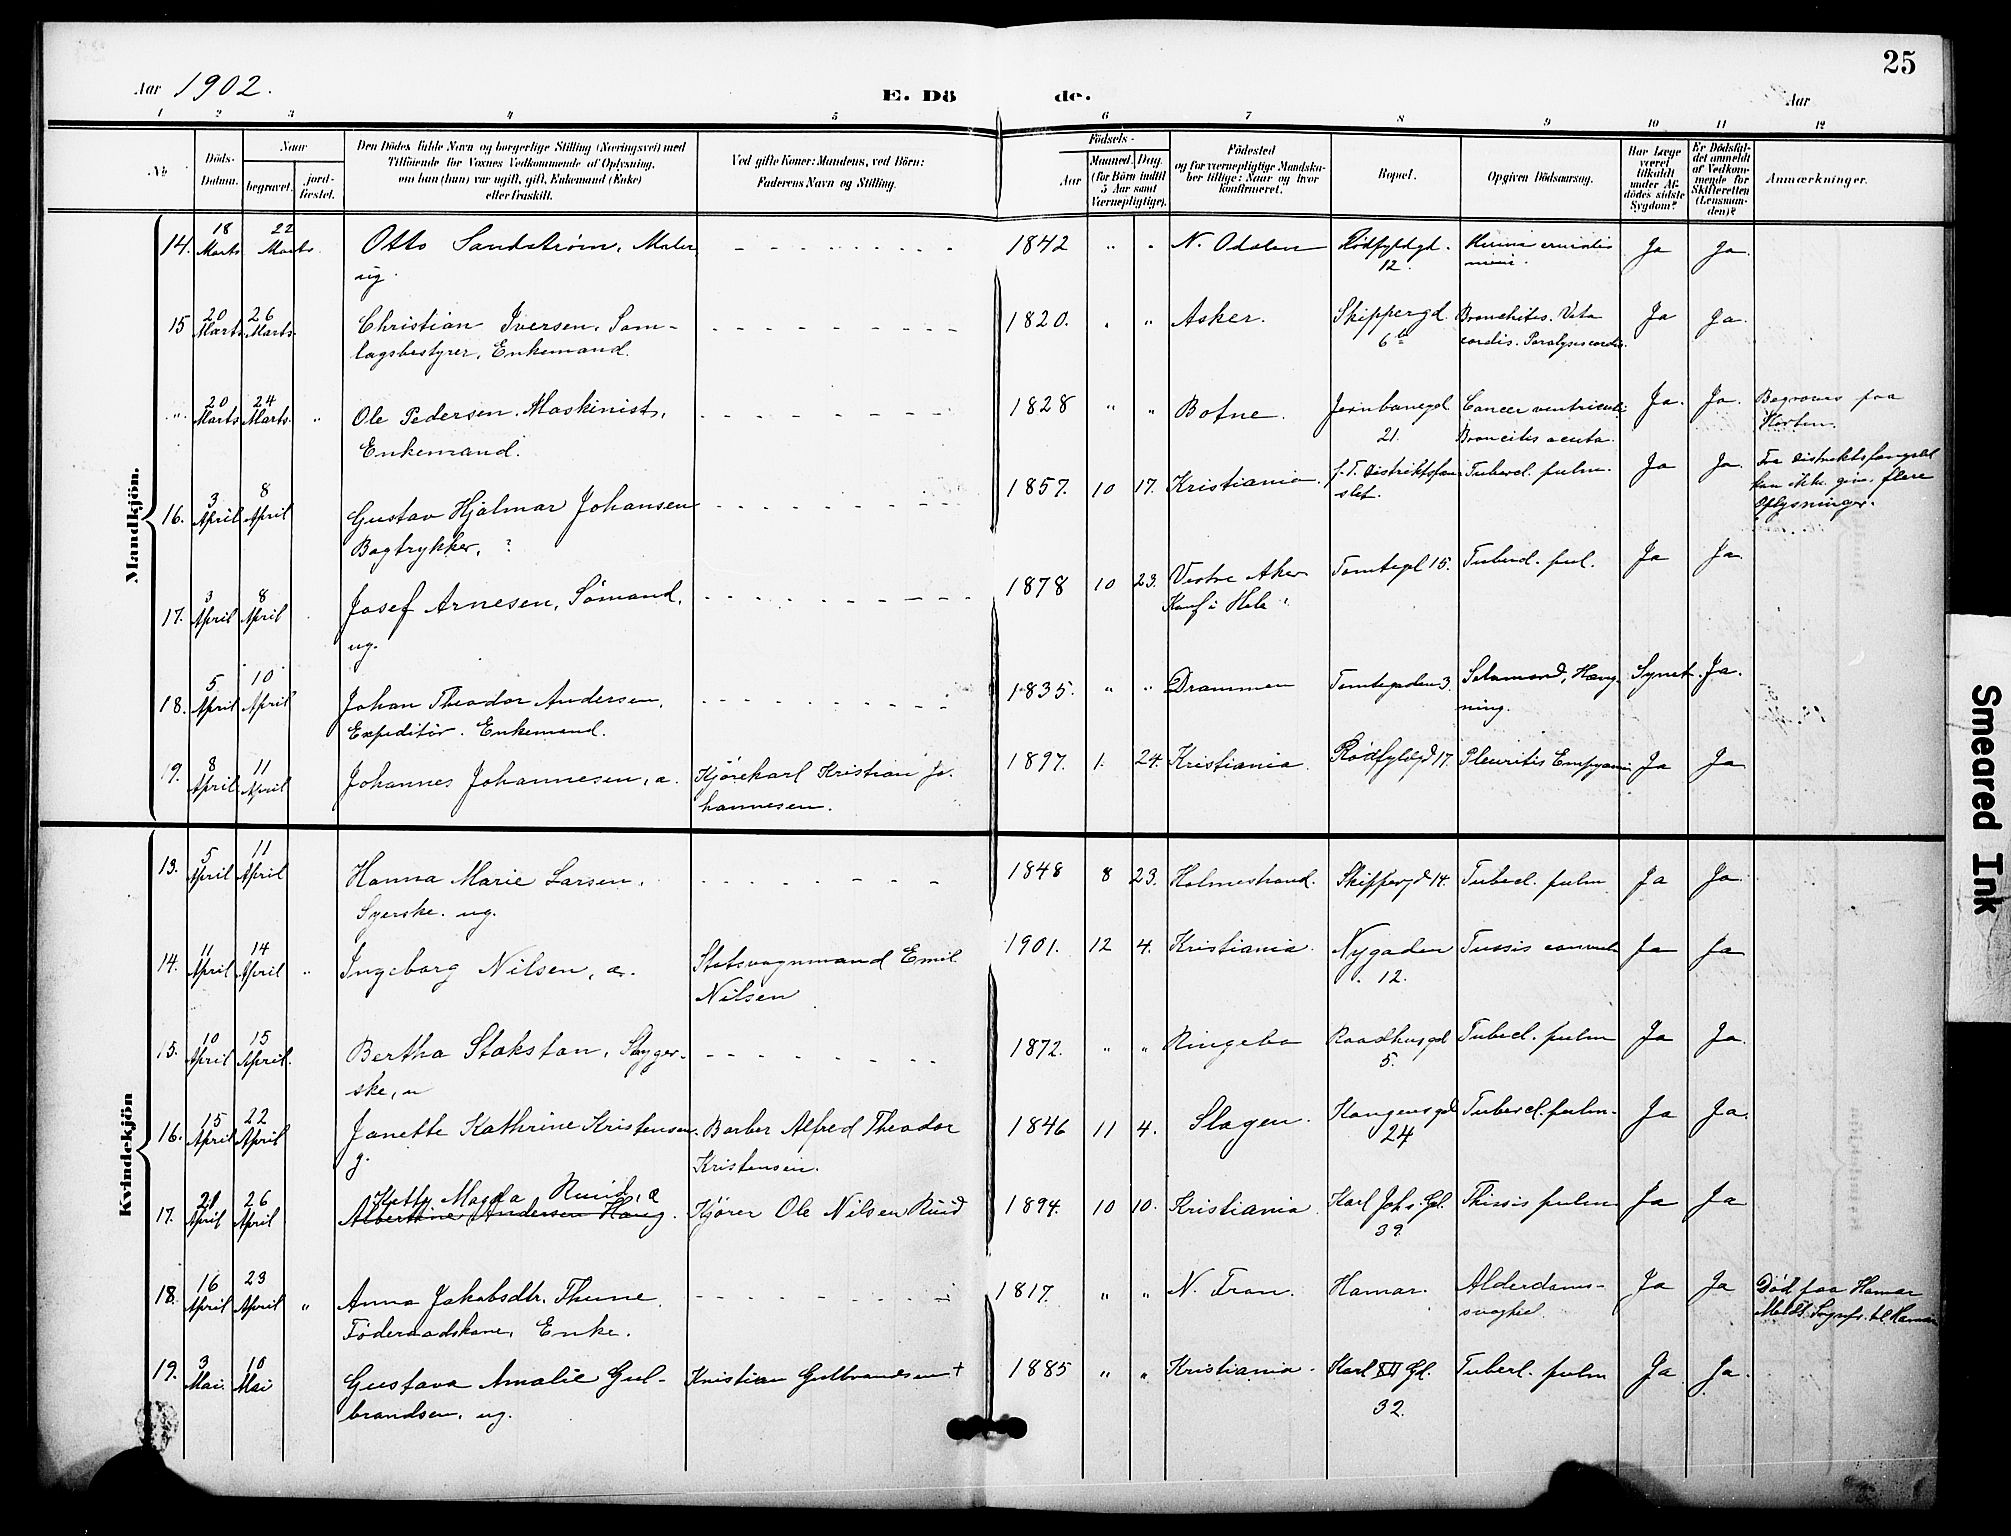 25
Aar 1902.
E. Dö de.
Aar
1 2 3 4 5 6 7 8 9 10 11 12
No
Döds-Datum.
Naar
begravet.
jord-fæstet.
Den Dödes fulde Navn og borgerlige Stilling (Næringsvei) med
Tilföiende for Voxnes Vedkommende af Oplysning,
om han (hun) var ugift, gift, Enkemand (Enke)
eller fraskilt.
Ved gifte Koner: Mandens, ved Börn:
Faderens Navn og Stilling.
Födsels-
Aar
Maaned. Dag.
(for Börn indtil
5 Aar samt
Værnepligtige).
Födested
og for værnepligtige Mandska-
ber tillige: Naar og hvor
konfirmeret.
Bopæl.
Opgiven Dödsaarsag.
Har Læge
været
tilkaldt
under Af-
dödes sidste
Sygdom?
Er Dödsfal-
det anmeldt
af Vedkom-
mende for
Skifteretten
(Lensman-
den)?
Anmærkninger.
Mandkjön.
14. 18 Marts 22 Marts. Otto Sandström, Maler, ug. 1842 " " N. Odalen Rödfyldgd. 12. Ja Ja.
15 20 Marts 26 Marts. Christian Iversen, Sam-
lagsbestyrer, Enkemand. 1820. " " Asker. Skippergd. 6 b Bronchitis. Vita
cordis. Paralysis cordis. Ja Ja.
". 20 Marts 24 Marts. " Ole Pedersen, Maskinist,
Enkemand. 1828 " " Botne. Jernbanegd. 21. Cancer ventriculi
Broncitis acuta. Ja. Ja. Begraves paa
Horten.
16. 3 April 8 April Gustav Hjalmar Johansen
Bogtrykker, ? 1857. 10 17. Kristiania. f. T. Distriktsfæn
slet. Tubercl. pulm. Ja Ja. Fra Distriktsfængslet
kan ikke gives flere
Oplysninger.
17. 3 April 8 April Josef Arnesen, Sömand,
ug. 1878 10 23. Vestre Aker
Konf i Hole ? Tomtegd 15. Tubercl. pul. Ja Ja.
18. 5 April 10 April Johan Theodor Andersen,
Expeditör. Enkemand. 1835. " " Drammen Tomtegaden 3. Selvmord, Hæng-
ning. Synet. Ja.
19. 8 April 11 April Johannes Johannesen, a. Kjörekarl Kristian Jo-
hannesen. 1897. 1. 24. Kristiania. Rödfyldgd 17. Pleuritis Empyem Ja Ja
Kvindekjön
13. 5 April 11 April Hanna Marie Larsen,
Syerske. ug. 1848 8 23. Holmestrand. Skippergd 14. Tubercl. pulm Ja Ja.
14. 11 April 14 April " Ingeborg Nilsen, a. Statsvognmand Emil
Nilsen 1901. 12 4. Kristiania. Nygaden
12. Tussis convuls Ja Ja
15. 10 April 15 April. Bertha Stokstan,
ske, u 1872. " " Ringebo Raadhusgd
5. Tubercl. pulm Ja Ja.
16. 15 April 22 April Janette Kathrine Kristensen.
g. Barber Alfred Theodor
Kristensen. 1846 11 4. Slagen. Kongensgd
24 Tubercl. pulm. Ja Ja.
17. 21 April 26 April Ketty Magda Ruud, a
Albertine Andersen Haug. Kjörer Ole Nilsen Ruud 1894. 10 10. Kristiania. Karl Johs. Gd.
39. Thisis pulm Ja Ja
18. 16 April 23 April " Anna Jakobsdtr. Thune.
Föderaadskone, Enke. 1817. " " N. Fron. Hamar. Alderdoms-
svaghed. Ja Ja Död paa Hamar
Meldt Sognpr. til Hamar
19. 3 Mai 10 Mai Gustava Amalie Gul-
brandsen, ug. Kristian Gulbrandsen + 1885 " " Kristiania. Karl XII Gd.
32. Tuberl. pulm Ja Ja.
Smeared Ink